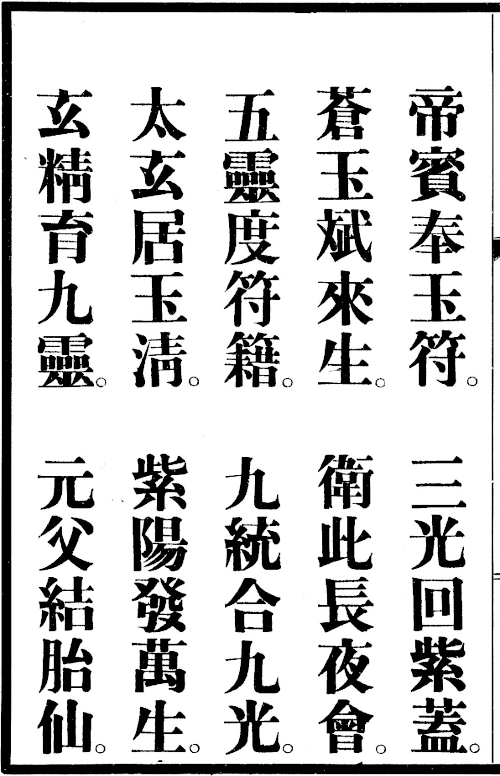 帝賓奉玉符。三光回紫蓋。
蒼玉斌來生。衛此長夜會。
五靈度符籍。九統合九光。
太玄居玉清。紫陽發萬生。
玄精育九靈。元父結胎仙。